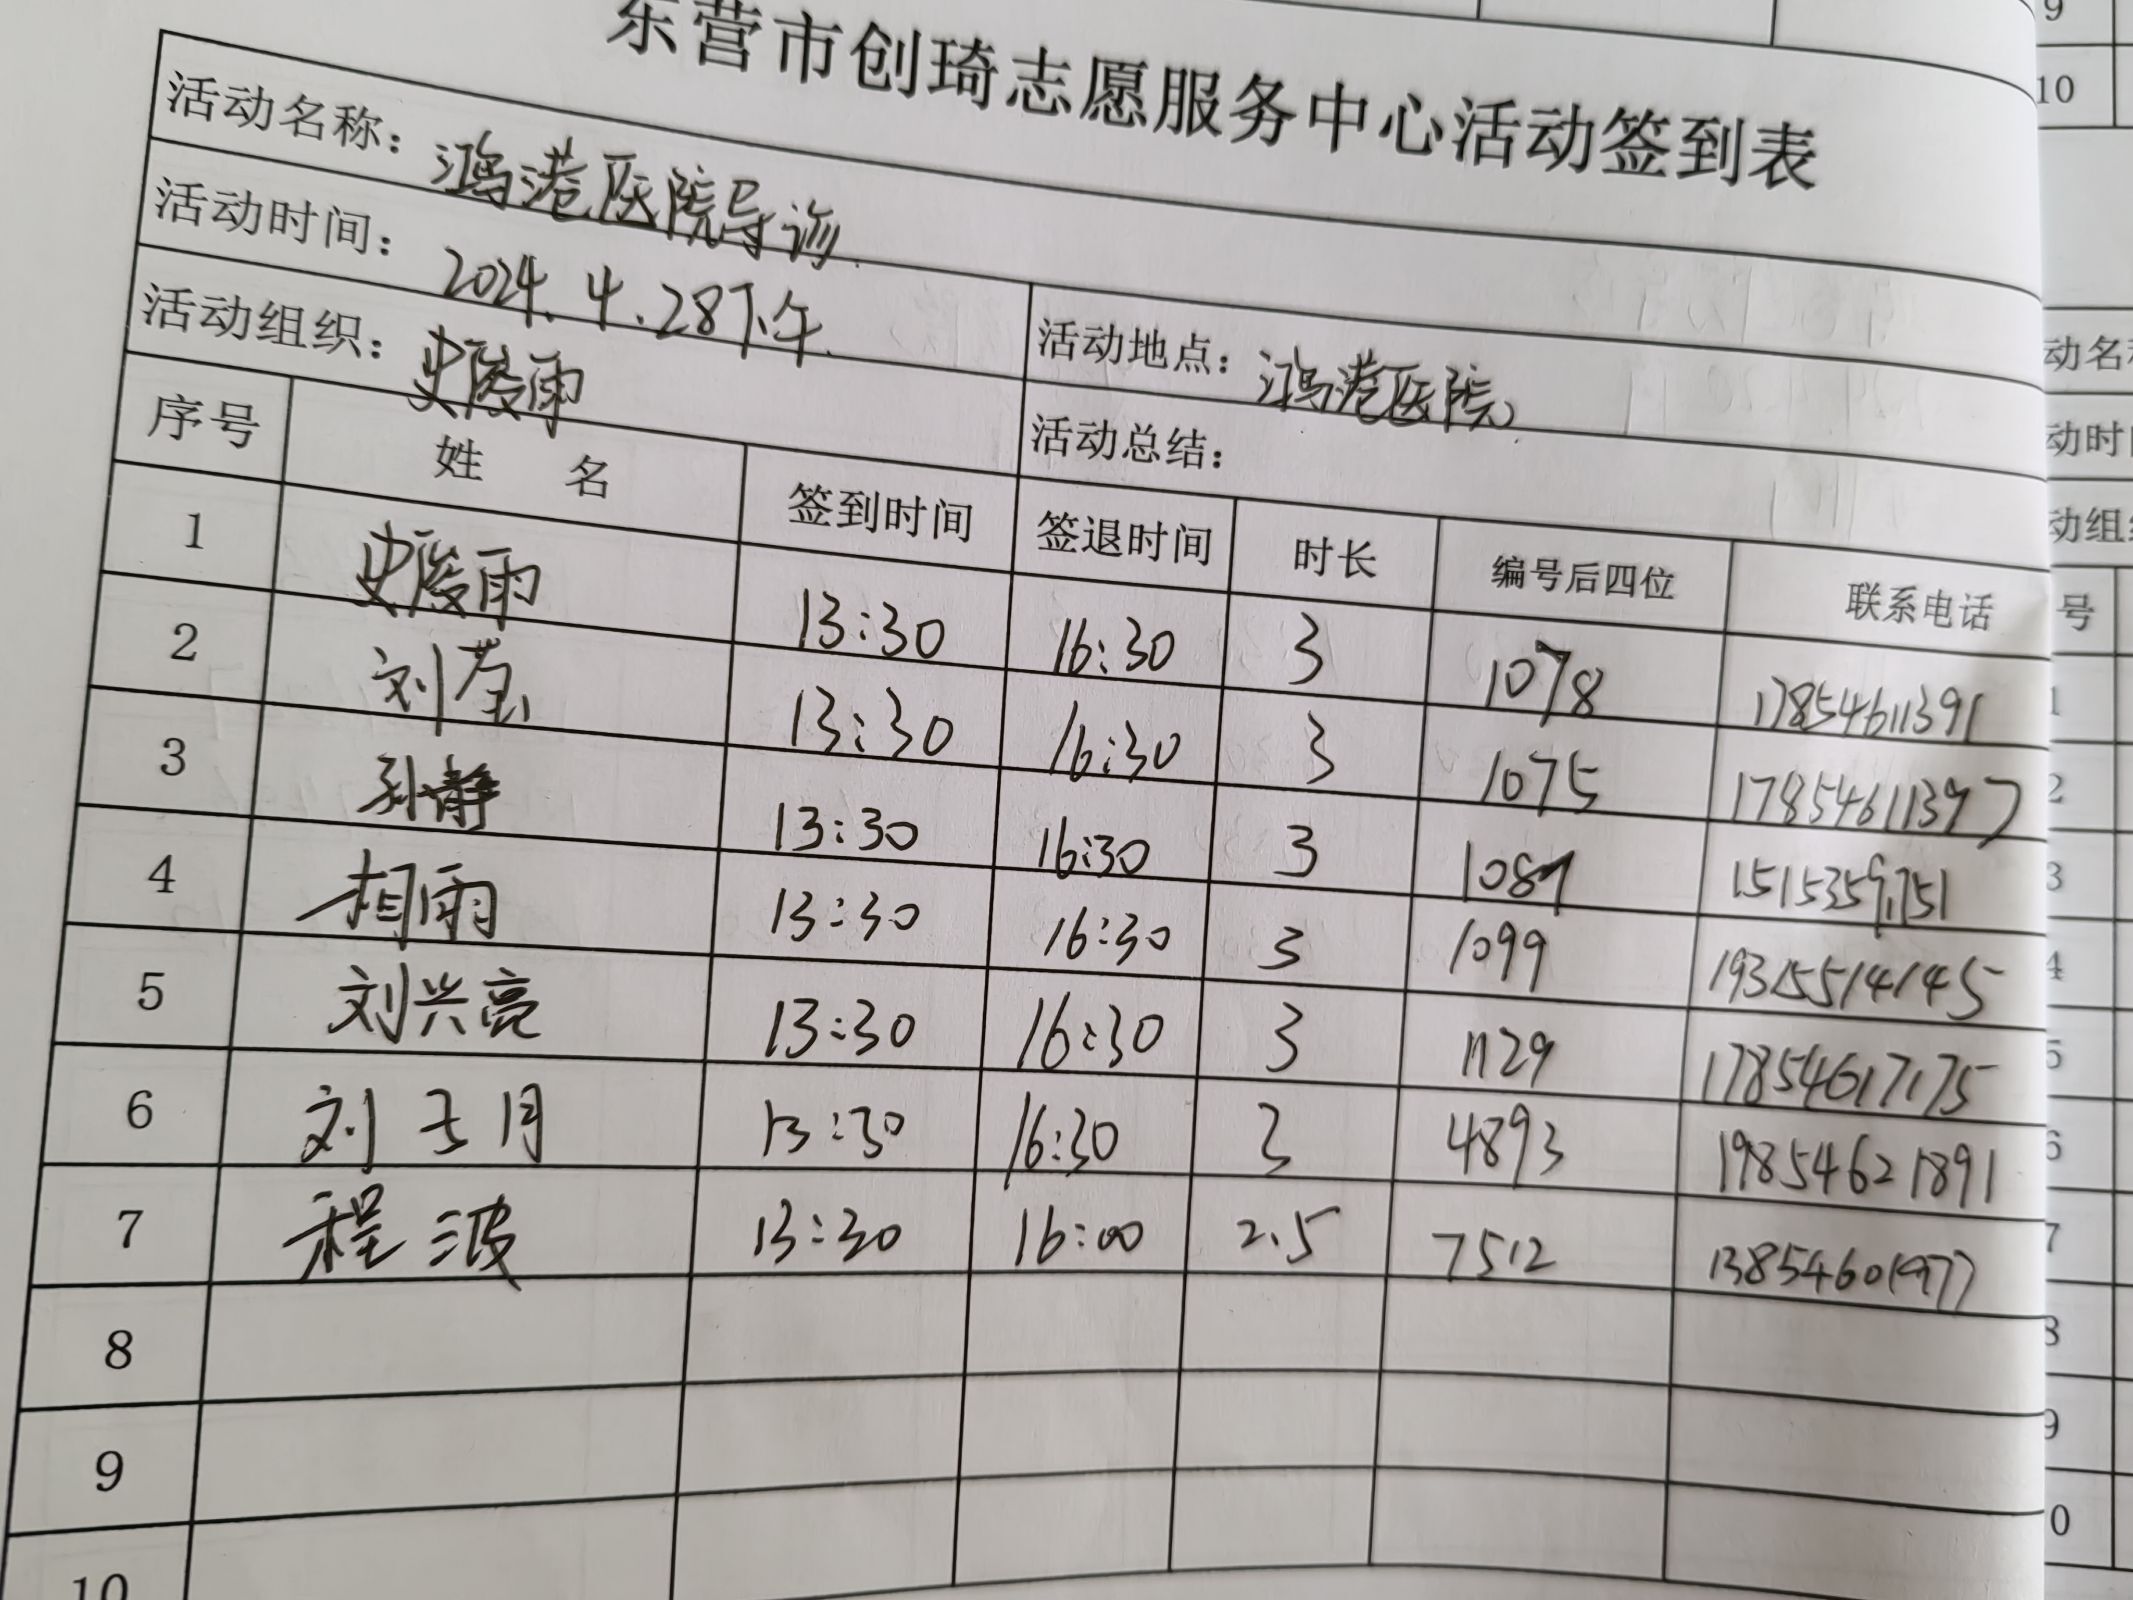 东营市创琦志愿服务中心活动签到表
活动名称：鸿港医院导诊
活动时间：2024.4.28下午
活动地点：鸿港医院
活动组织：史俊雨
活动总结：
序号 姓名 签到时间 签退时间 时长 编号后四位 联系电话
1 史俊雨 13:30 16:30 3 1078 17854611391
2 刘莹 13:30 16:30 3 1075 17854611397
3 孙静 13:30 16:30 3 15153591751
4 相雨 13:30 16:30 3 1099 19315514145
5 刘兴亮 13:30 16:30 3 1129 17854617175
6 刘 月 13:30 16:30 3 4893 19854621891
7 程波 13:30 16:00 2.5 7512
8
9
10
9
10
动名
动时
动组
号
1
2
3
4
5
6
7
8
9
0